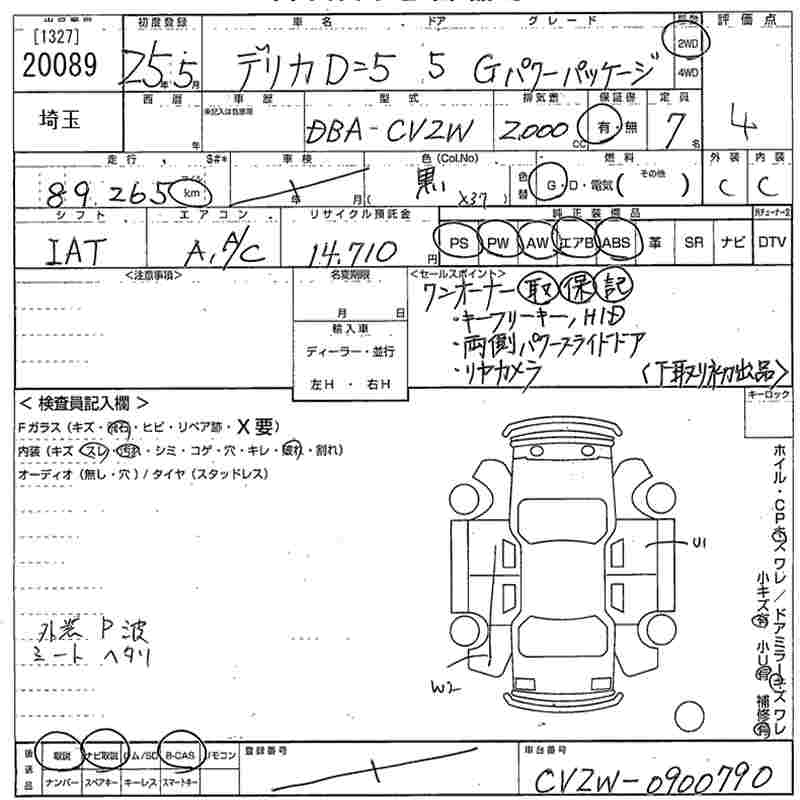 [1327]
20089
初度登録
車名
ドア
グレード
評価点
25年5月
デリカD=5
5
Gパワーパッケージ
2WD
4WD
埼玉
西暦
車歴
型式
排気量
保証書
定員
年
DBA-CV2W
2,000
CC
有・無
7名
4
走行
S#*
車検
色(Col.No)
燃料
外装
内装
89,265
km
年
月
黒
X37
色替
G・D・電気(
その他
)
C
C
シフト
エアコン
リサイクル預託金
純正装備品
IAT
A,A/C
14,710
円
PS
PW
AW
エアB
ABS
革
SR
ナビ
DTV
<注意事項>
名変期限
<セールスポイント>
月
日
ワンオーナー 取 保 記
・キーフリーキー,HID
輸入車
・両側パワースライドドア
ディーラー・並行
・リヤカメラ
左H・右H
〈下取り初出品〉
<検査員記入欄>
キーロック
Fガラス(キズ・飛石・ヒビ・リペア跡・X要)
内装(キズ・スレ・汚れ・シミ・コゲ・穴・キレ・破れ・割れ)
オーディオ(無し・穴)/タイヤ(スタッドレス)
U1
外装 P 波
シート ヘタリ
W2
ホイル・CPキズワレ/ドアミラーキズワレ
小キズ有 小U有 補修有
後送品
取説
ナビ取説
B-CAS
リモコン
登録番号
車台番号
ナンバー
スペアキー
キーレス
スマートキー
CV2W-0900790